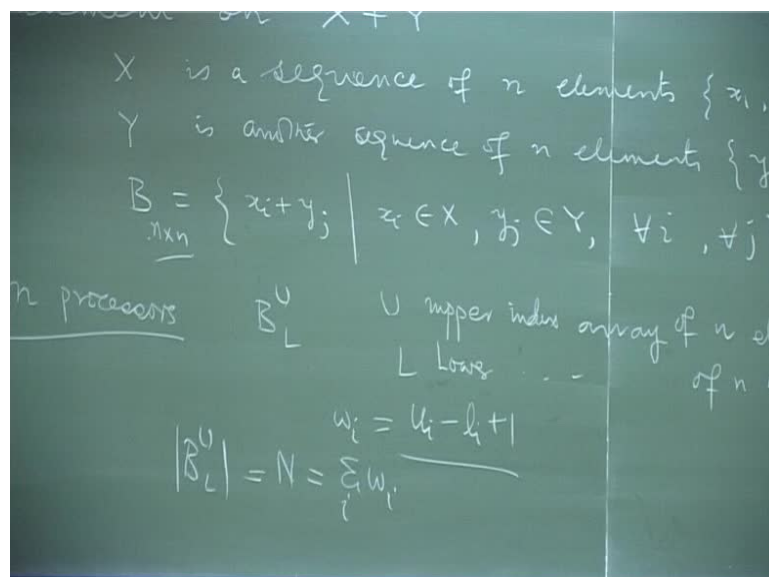 on X + Y
X is a sequence of n elements { x₁,
Y is another sequence of n elements {y
B = { xᵢ + yⱼ | xᵢ ∈ X, yⱼ ∈ Y, ∀i, ∀j
n×n
n processors B_L^U U upper index array of n el
L Lower ... of n
wᵢ = uᵢ - lᵢ + 1
|B_L^U| = N = Σᵢ wᵢ